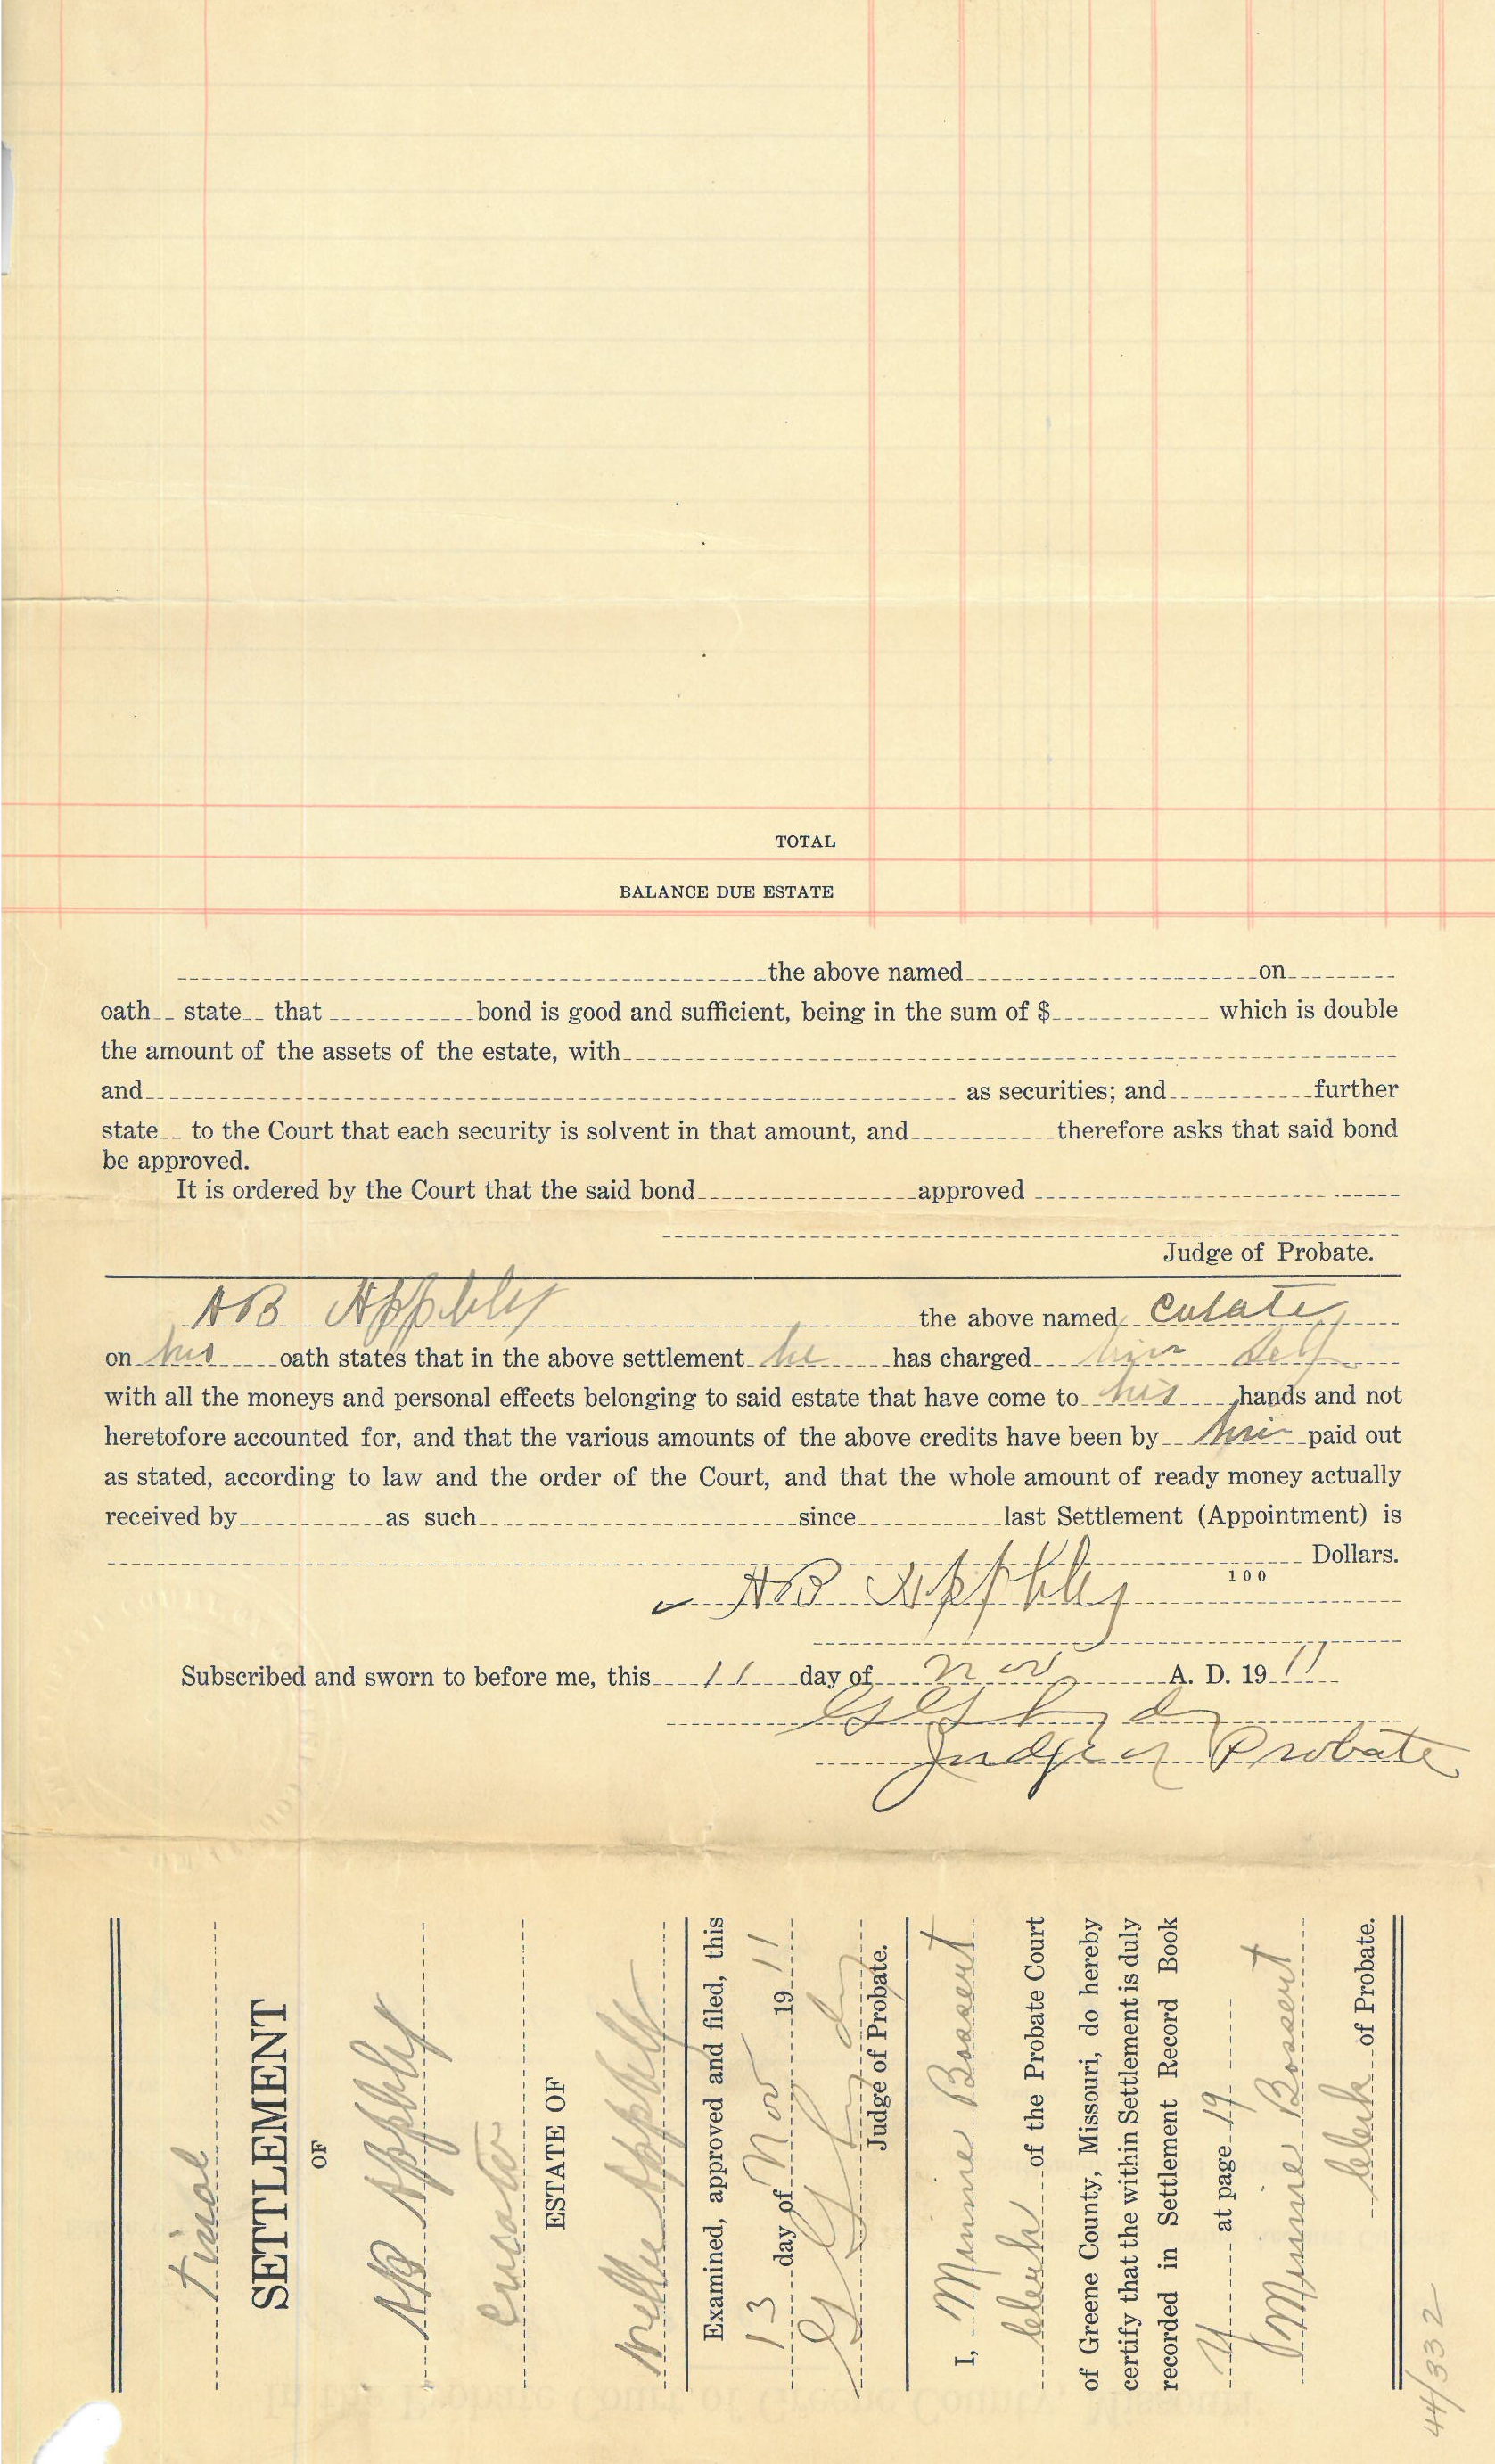 TOTAL
BALANCE DUE ESTATE
the above named on
oath state that bond is good and sufficient, being in the sum of $ which is double
the amount of the assets of the estate, with
and as securities; and further
state to the Court that each security is solvent in that amount, and therefore asks that said bond
be approved.
It is ordered by the Court that the said bond approved
Judge of Probate.
AB Appleby the above named
on his oath states that in the above settlement he has charged him self
with all the moneys and personal effects belonging to said estate that have come to his hands and not
heretofore accounted for, and that the various amounts of the above credits have been by him paid out
as stated, according to law and the order of the Court, and that the whole amount of ready money actually
received by as such since last Settlement (Appointment) is
Dollars.
100
AB Appleby
Subscribed and sworn to before me, this 11 day of Nov A. D. 19 11
Judge of Probate
Final
SETTLEMENT
OF
AB Appleby
Curator
ESTATE OF
Nellie Appleby
Examined, approved and filed, this
13 day of Nov 19 11
Judge of Probate.
I, Minnie Bossert
Clerk of the Probate Court
of Greene County, Missouri, do hereby
certify that the within Settlement is duly
recorded in Settlement Record Book
Y at page 19
Minnie Bossert
Clerk of Probate.
44/332
In the Probate Court of Greene County, Missouri